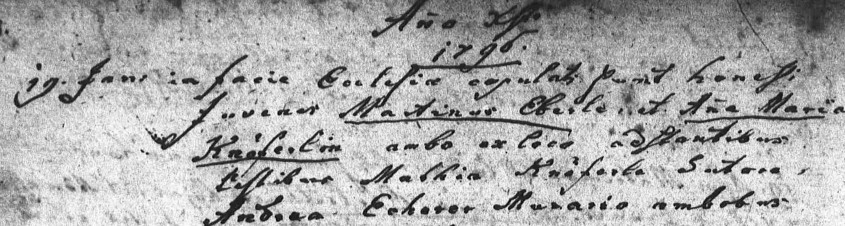 Año Xsti
1796.
19. Jan: in facie Ecclesiæ copulati sunt honesti
Juvenes Martinus Eberle, et Aña Maria
Knëferlin ambo ex loco adstantibus
testibus Mathia Knëferle Sutore,
Andrea Echerer Murario ambobus